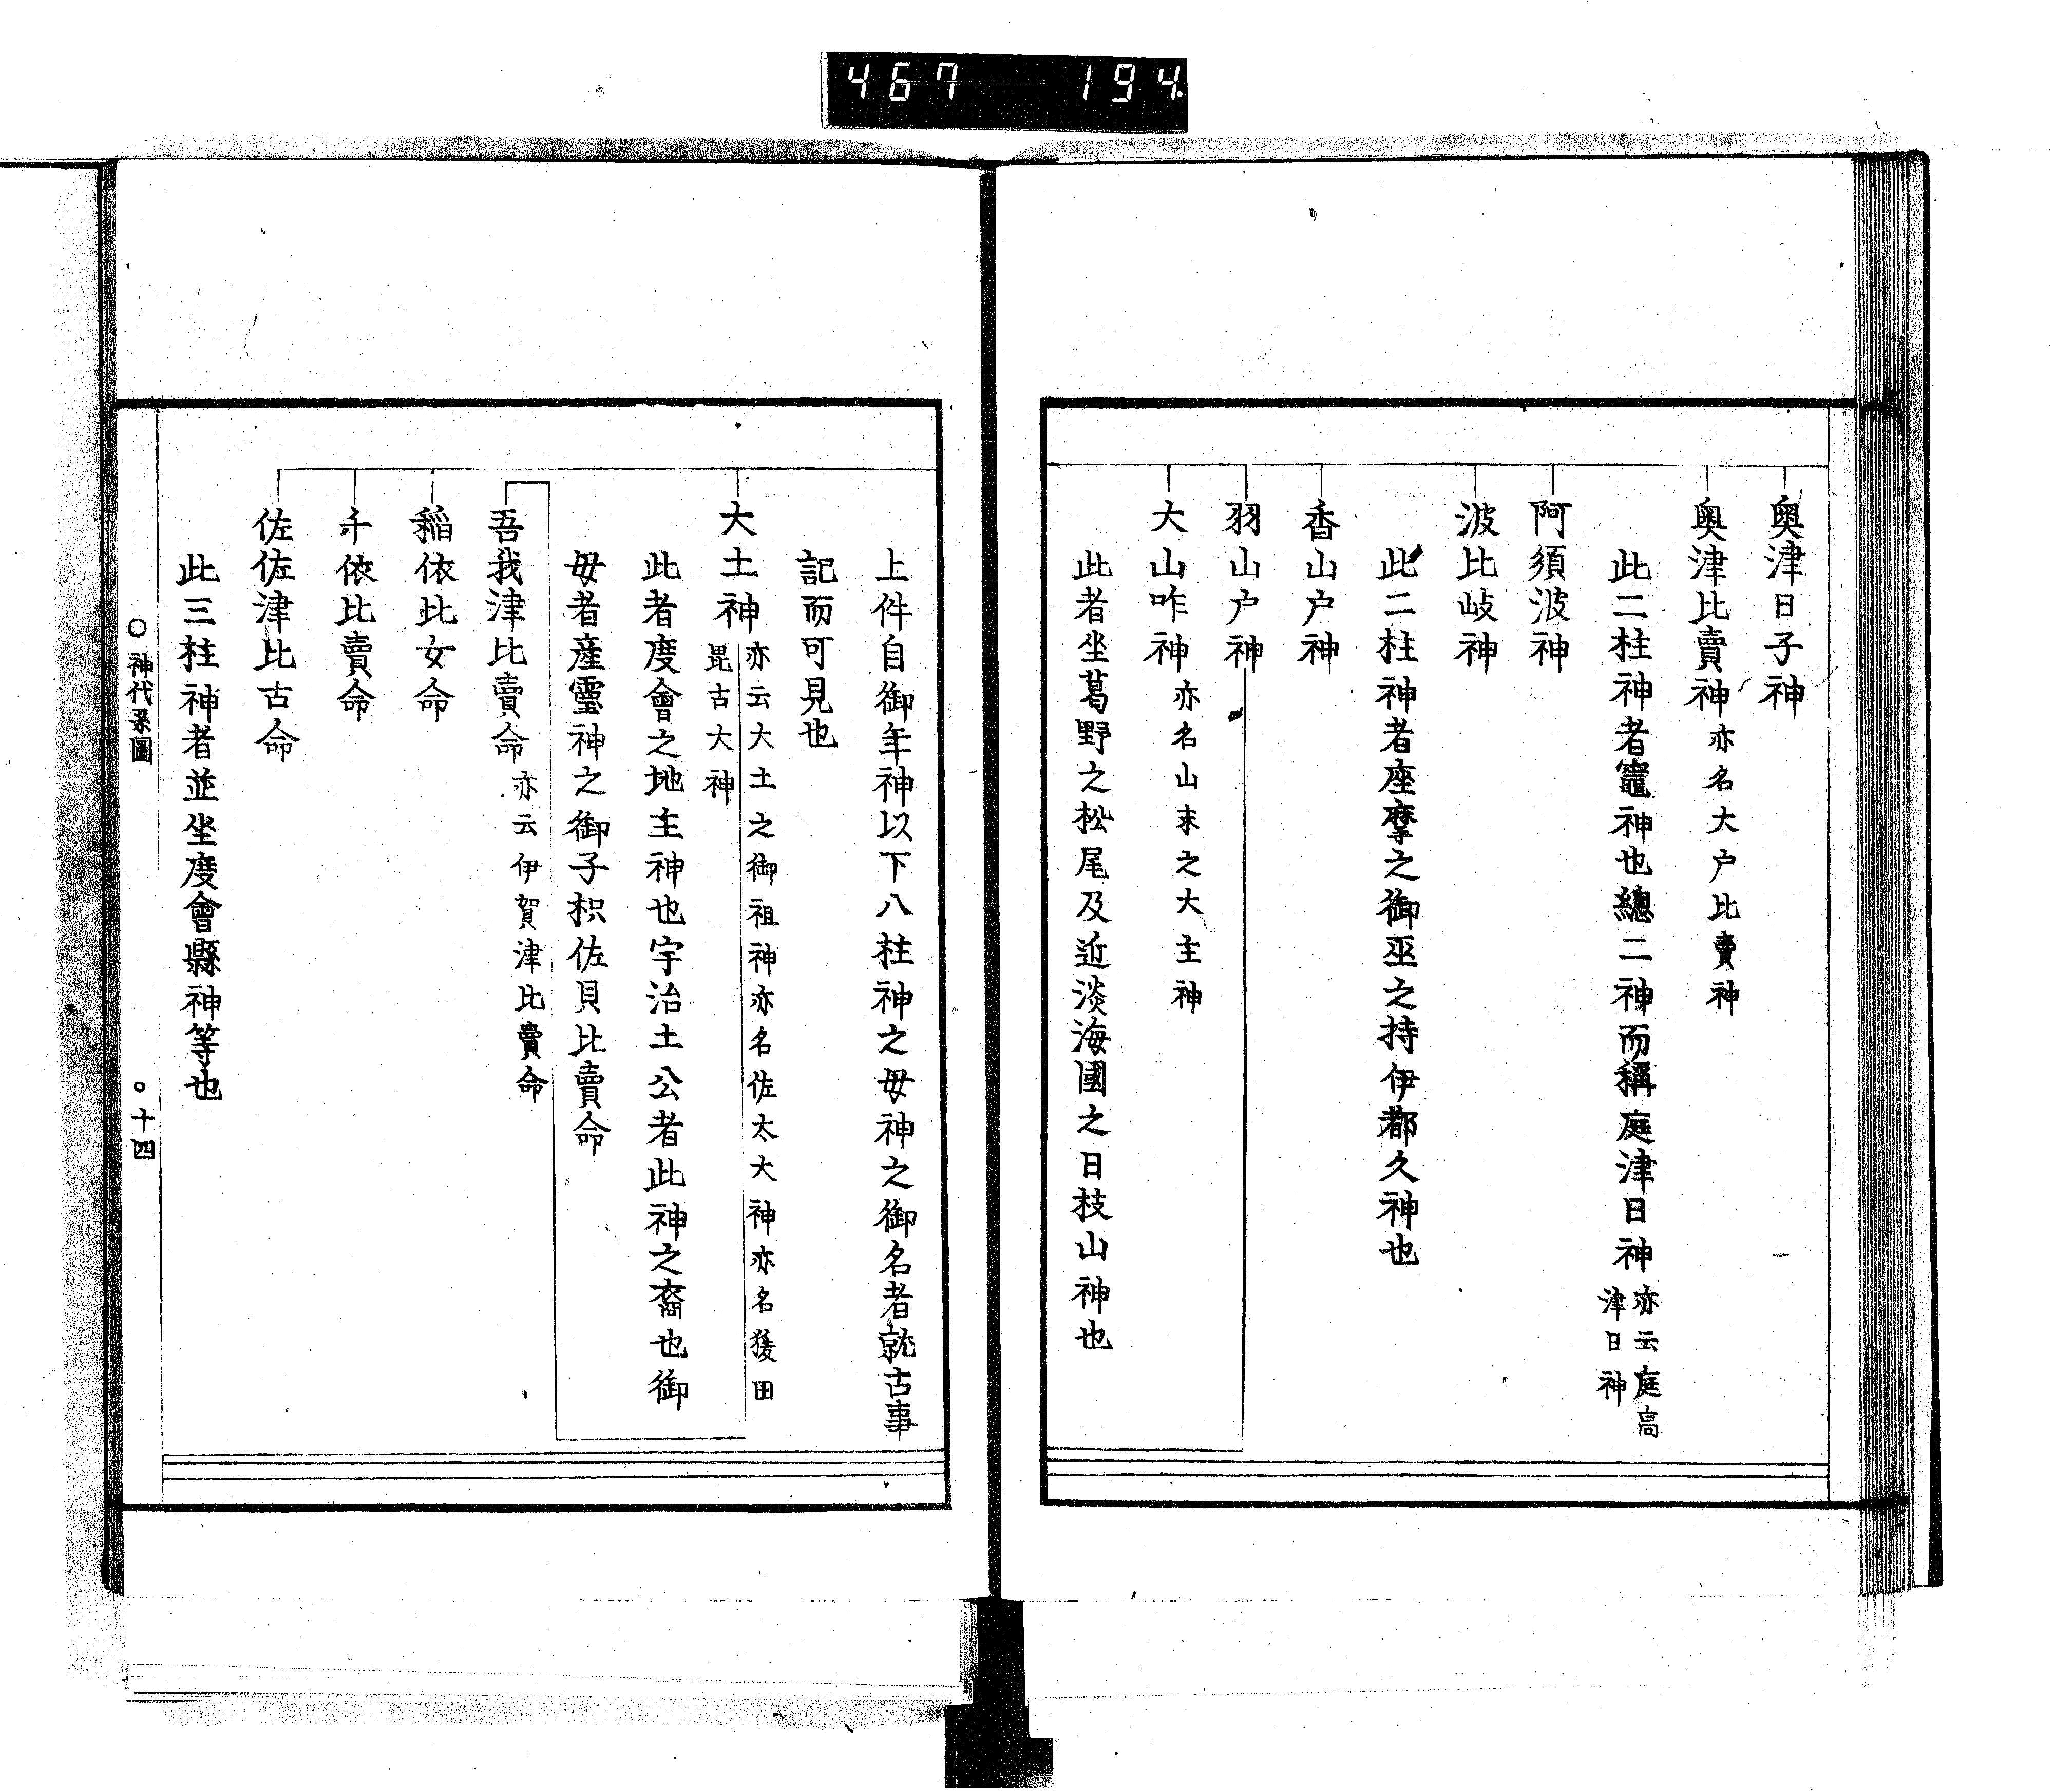 467 194.
奧津日子神
奧津比賣神亦名大戸比賣神
此二柱神者竈神也總二神而稱庭津日神亦云庭高
津日神
阿須波神
波比岐神
此二柱神者座摩之御巫之持伊都久神也
香山戸神
羽山戸神
大山咋神亦名山末之大主神
此者坐葛野之松尾及近淡海國之日枝山神也
上件自御年神以下八柱神之母神之御名者就古事
記而可見也
大土神亦云大土之御祖神亦名佐太大神亦名猨田
毘古大神
此者度會之地主神也宇治土公者此神之裔也御
母者産靈神之御子枳佐貝比賣命
吾我津比賣命亦云伊賀津比賣命
稲依比女命
千依比賣命
佐佐津比古命
此三柱神者並坐度會縣神等也
○神代系圖 ○十四